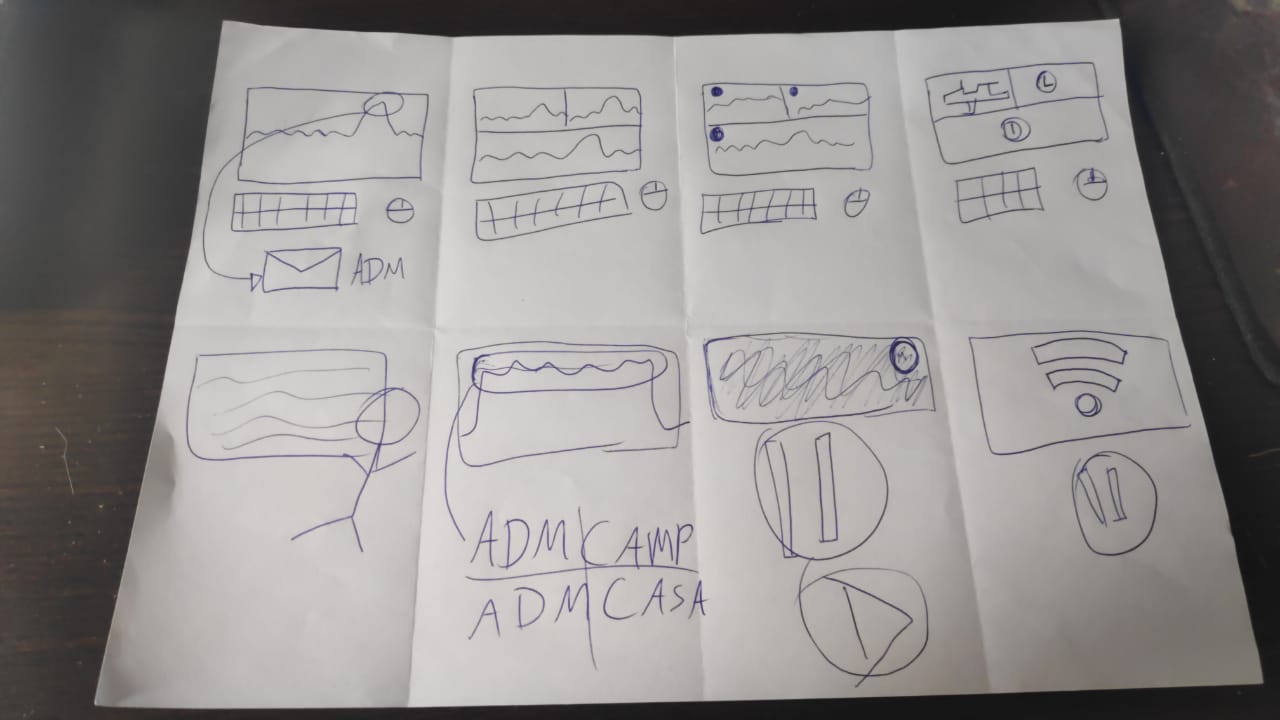 ADM
ADM CAMP
ADM CASA